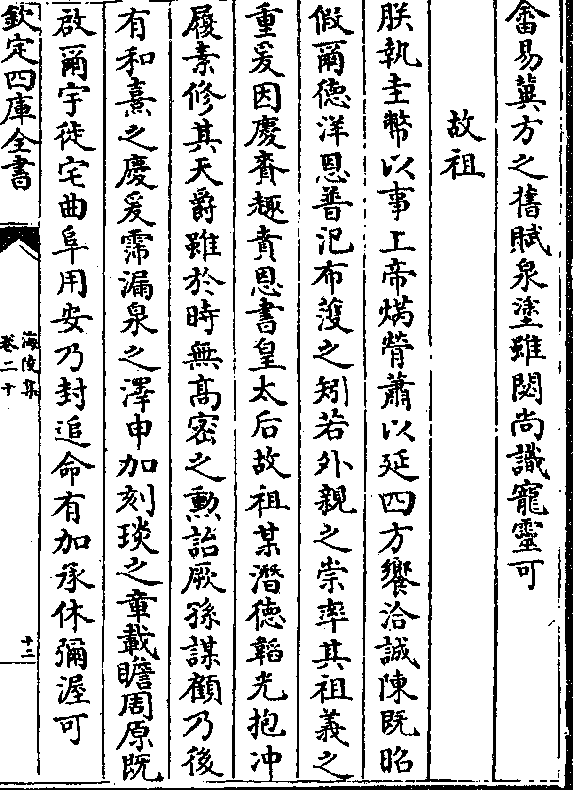 畬易冀方之舊賦泉塗雖閟尚識寵靈可
故祖
朕執圭幣以事上帝焫膋蕭以延四方饗洽誠陳既昭
假爾德洋恩普汜布濩之矧若外親之崇率其祖義之
重爰因慶賚趣賁恩書皇太后故祖某潛德韜光抱冲
履素修其天爵雖於時無髙密之勲詒厥孫謀顧乃後
有和熹之慶爰霈漏泉之澤申加刻琰之章載瞻周原既
啟爾宇徙宅曲阜用安乃封追命有加承休彌渥可
欽定四庫全書
海陵集
卷二十
十二